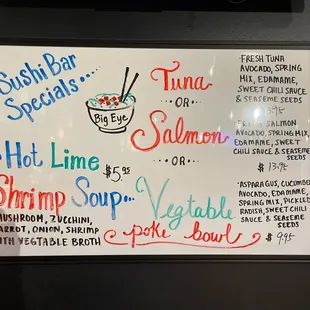 Sushi Bar
Specials...
Big Eye
Hot Lime
$5.95
Shrimp Soup...
MUSHROOM, ZUCCHINI,
CARROT, ONION, SHRIMP
WITH VEGTABLE BROTH
Tuna
-OR-
Salmon
-OR-
Vegtable
poke bowl
FRESH TUNA
AVOCADO, SPRING
MIX, EDAMAME,
SWEET CHILI SAUCE
& SEASEME SEEDS
SALMON
AVOCADO, SPRING MIX,
EDAMAME, SWEET
CHILI SAUCE & SEASEME
SEEDS
$ 13.95
*ASPARAGUS, CUCUMBER
AVOCADO, EDAMAME,
SPRING MIX, PICKLED
RADISH, SWEET CHILI
SAUCE & SEASEME
SEEDS
$ 9.95